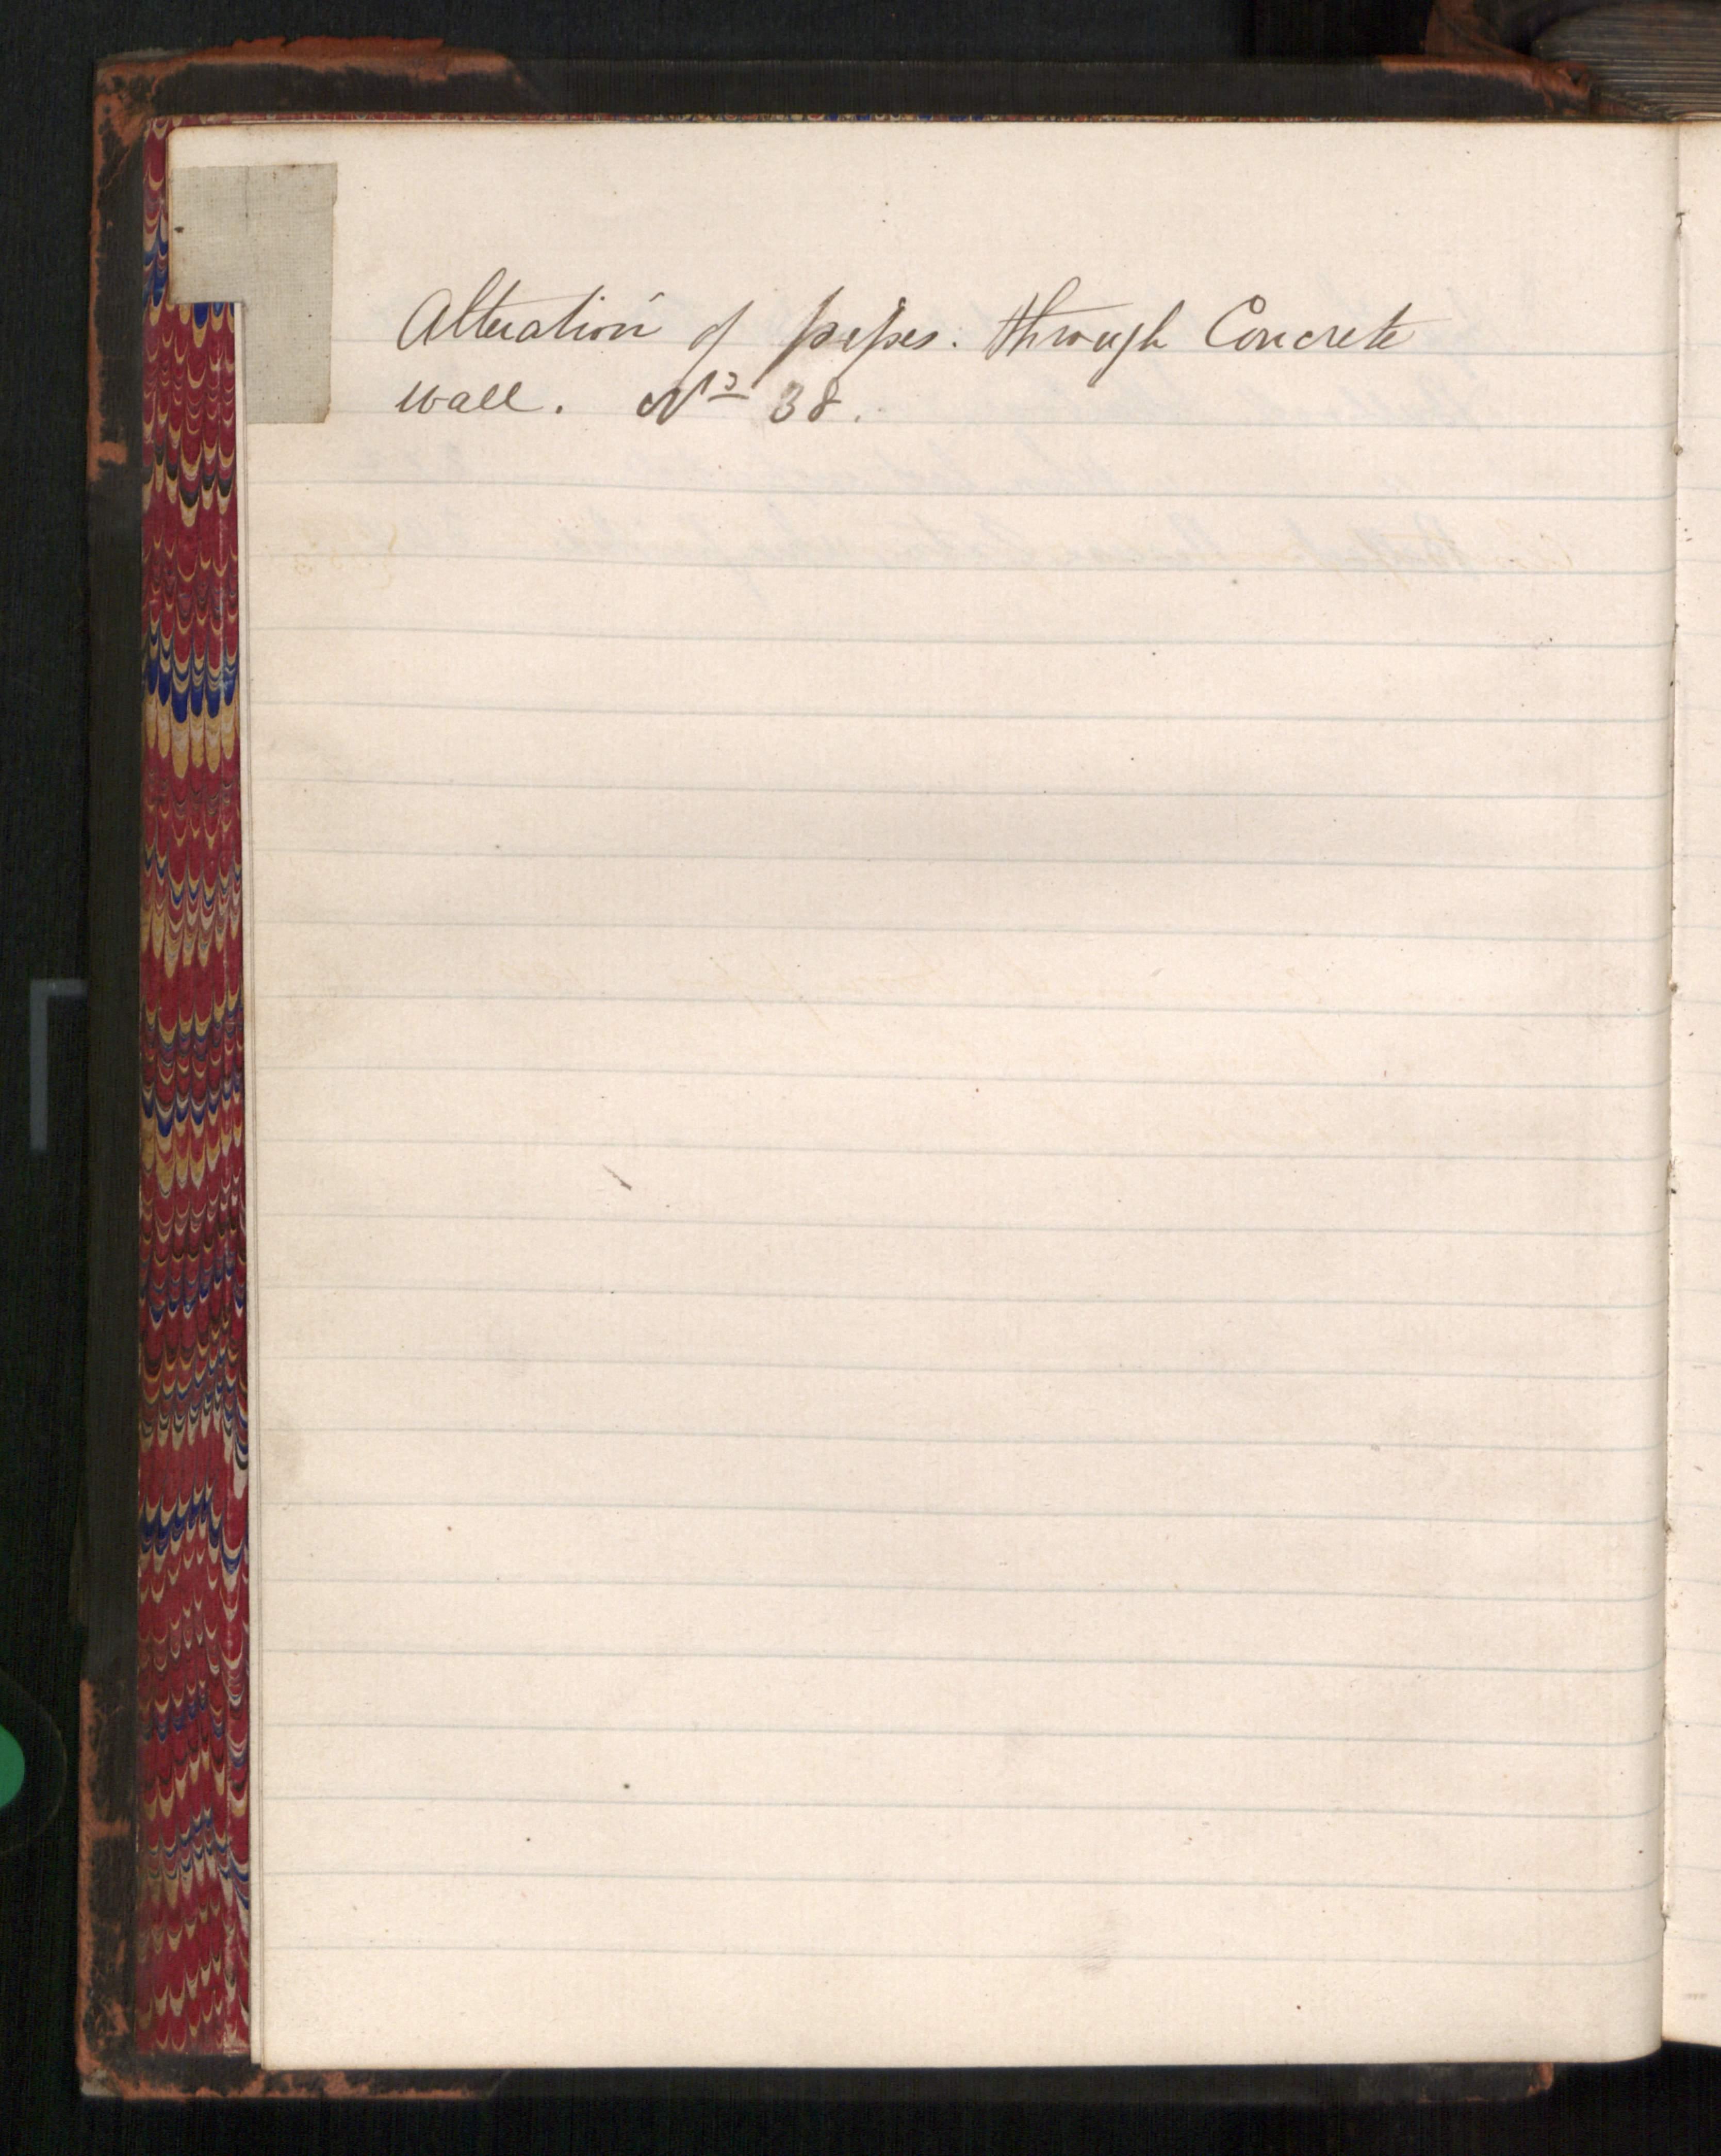 Alteration of pipes. through Concrete
wall. No 38.